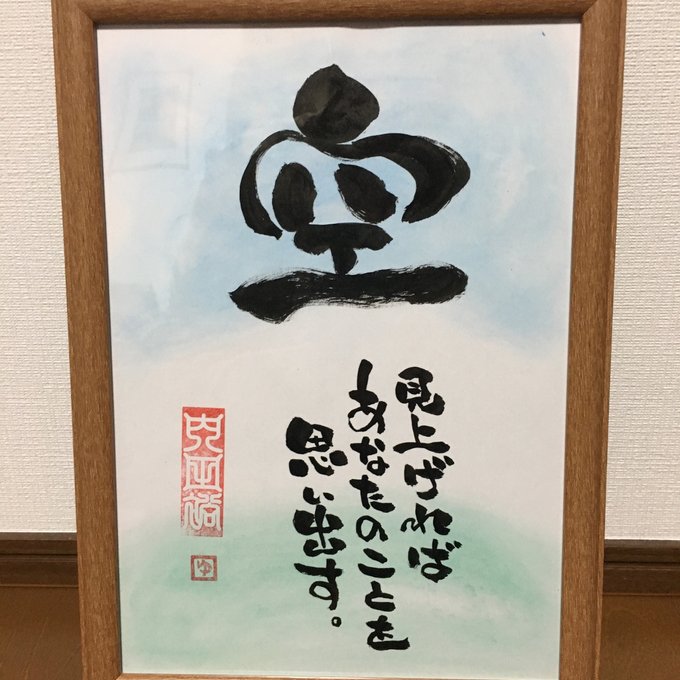 空
見上げれば
あなたのことを
思い出す。
内田裕
ゆ